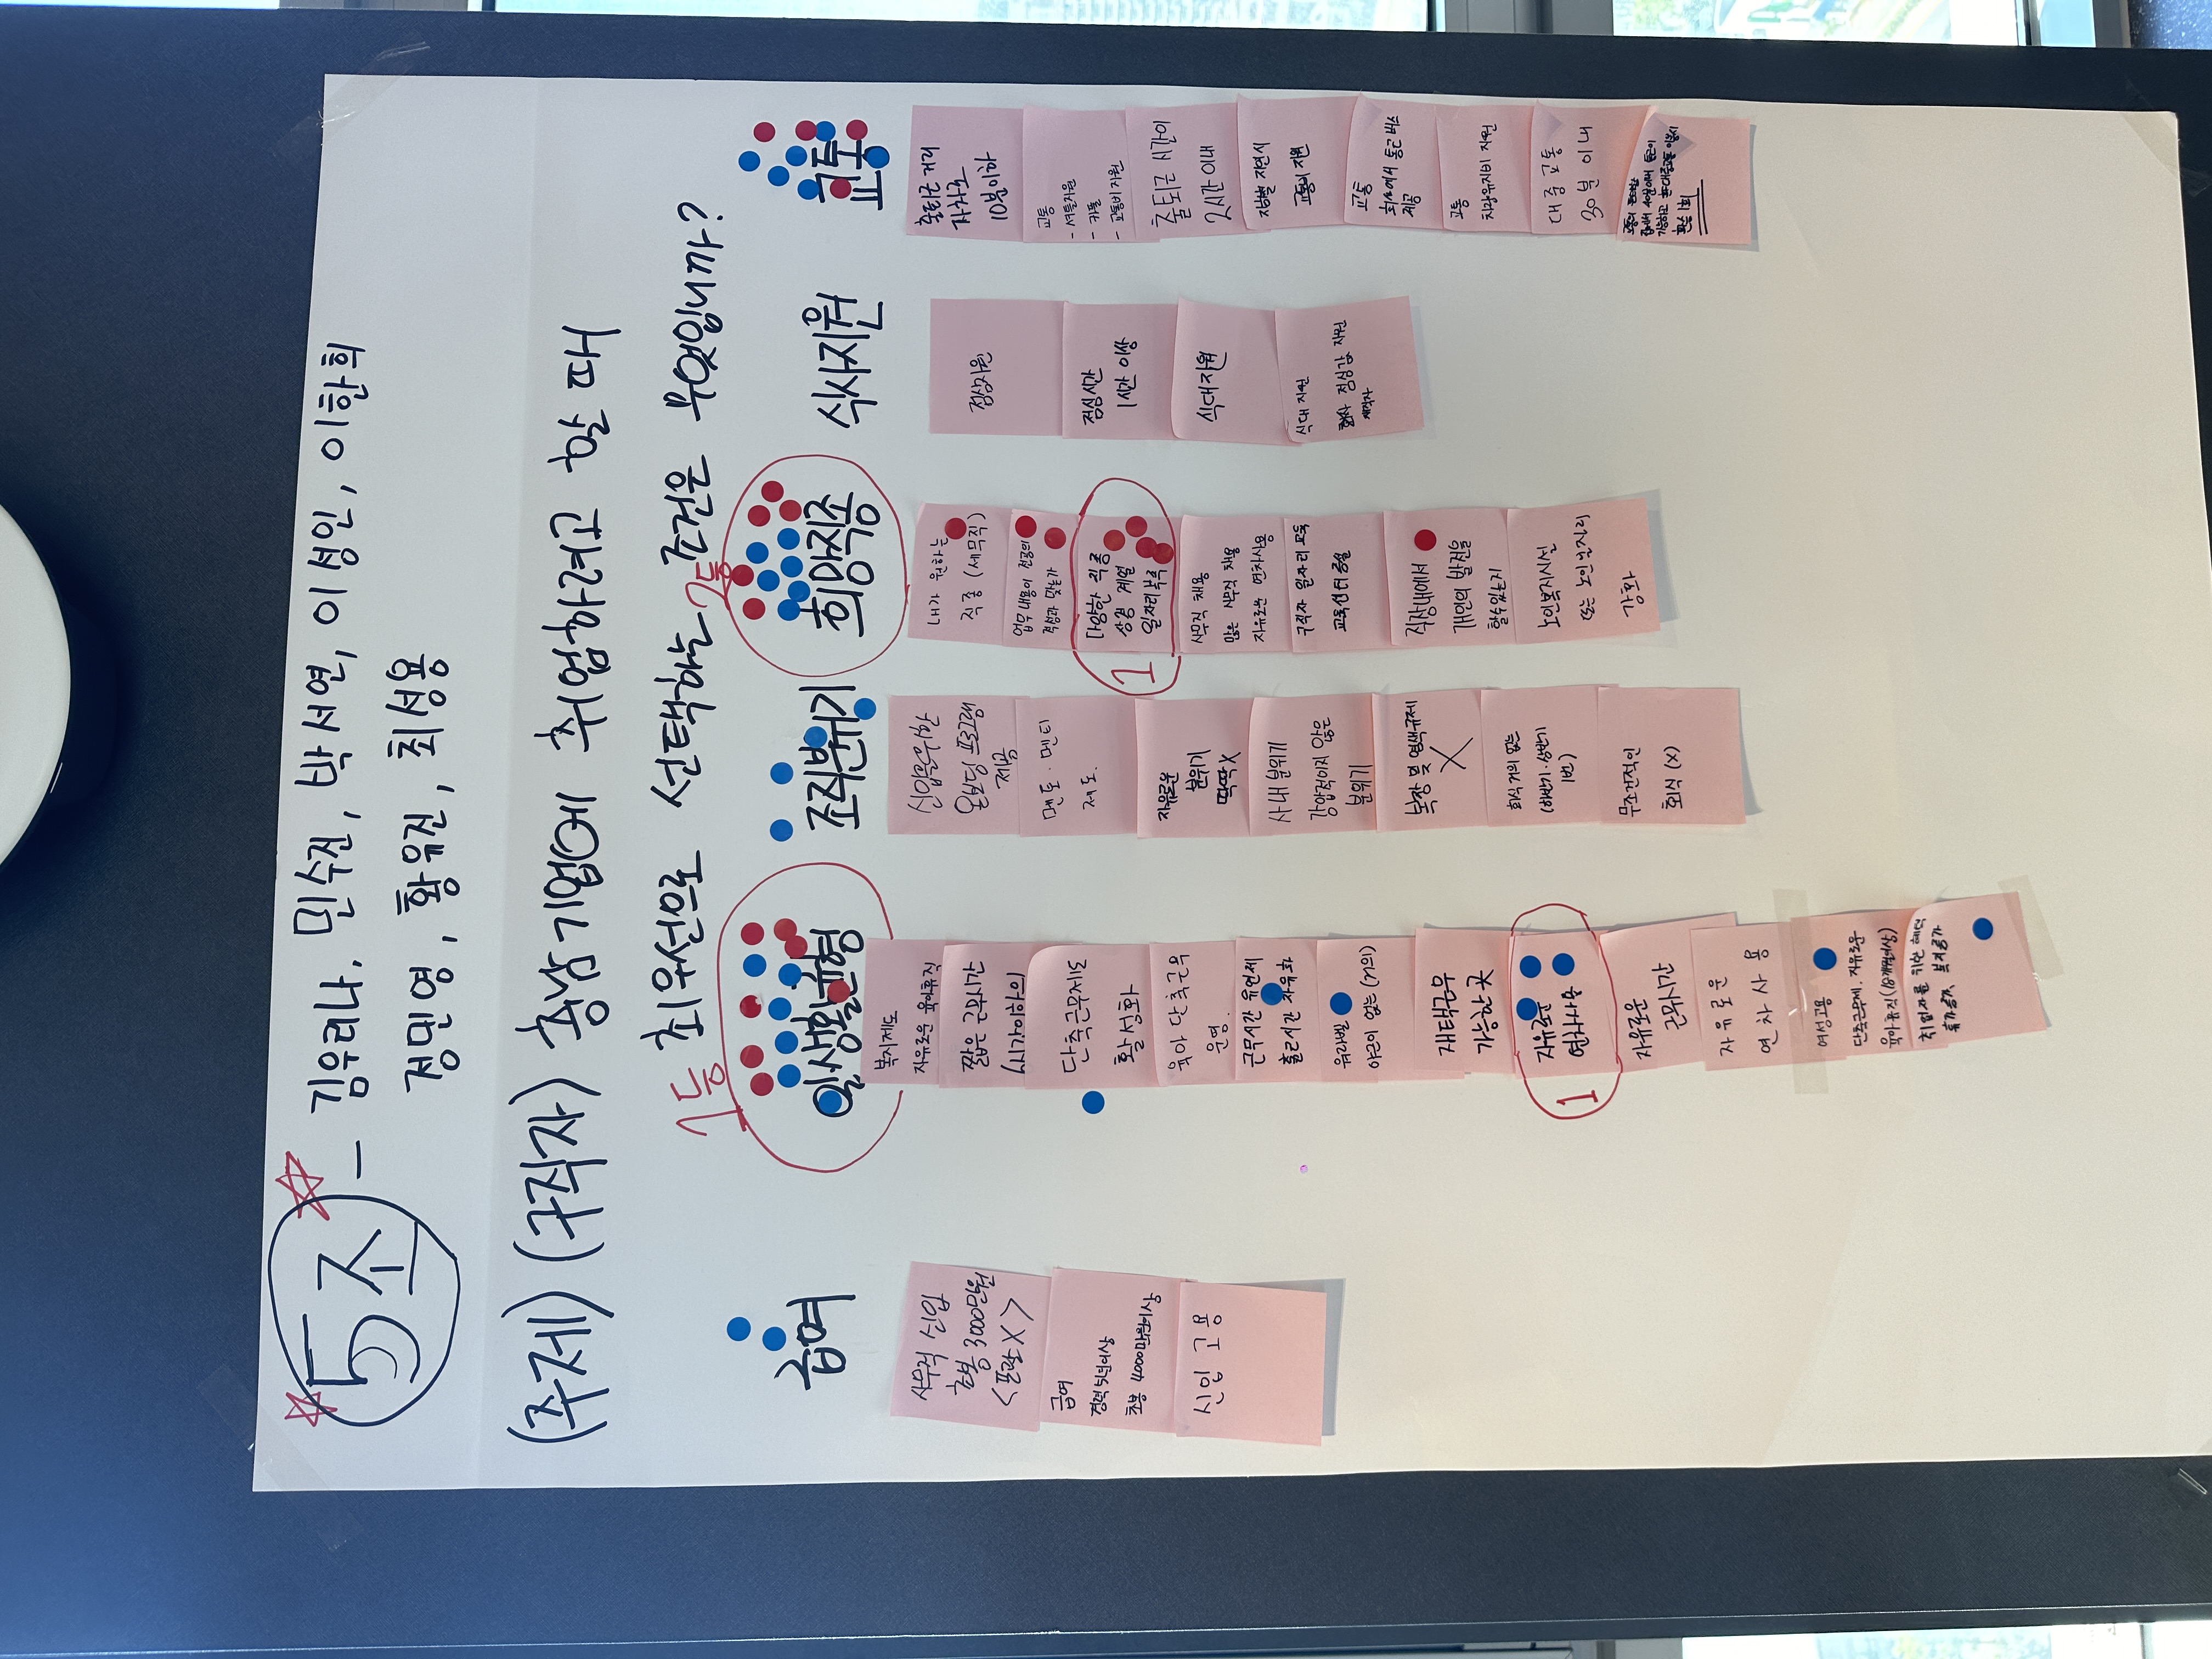 5조 - 김우리나, 민수진, 박서연, 이성인, 이한희
정민영, 황유진, 최성용
(주제) (구직자) 중삼기업에 취업하려고 할 때
최우선으로 선택하는 조건은 무엇입니까?
급여
사무직 신입
초봉 3000만원
<포괄X>
급여
경력 5년이상
초봉 4,000만원이상
신입 고용
1등
일생활균형
복지제도
자유로운 육아휴직
짧은 근무시간
단축근무제도
활성화
육아 단축근무
운영.
근무시간 유연제
출근시간 자유화
워라벨
야근이 없는 (거의)
재택근무
가능한 곳
1
자유로운
연차사용
자유로운
근무시간
자유로운
연차사용
여성고용
단축근무제. 자유로운
취업자를 위한 혜택
조직분위기
신입을위한
온보딩 프로그램
제공
멘토·멘티
제도.
자유로운
분위기
딱딱X
사내 분위기
강압적이지 않은
분위기
복장 및 염색규제
X
회식 거의 없는
(하반기·상반기
1번)
무조건적인
회식 (X)
2등
희망직종
내가 원하는
직종 (세무직)
업무 내용이 전공이
적성과 맞는가
1
다양한 직종
상경 계열
일자리 부족
사무직 채용
많은 사무직 채용
자유로운 연차사용
구직자 일자리 교육
교육센터 증설
직장내에서
개인의 발전을
할수있는지
노인복지시설
또는 노인일자리
강화
식사지원
점심지원
점심시간
1시간 이상
식대지원
식대 지원
회사 점심값 지원
교통
출퇴근 거리
자차로
10분이하
교통
- 셔틀지원
- 카풀
- 교통비 지원
출퇴근 시간이
2시간 이내
교통비 지원
교통
회사에서 통근 버스
제공
교통
차량유지비 지원
대중교통
30분 이내
환승 1회